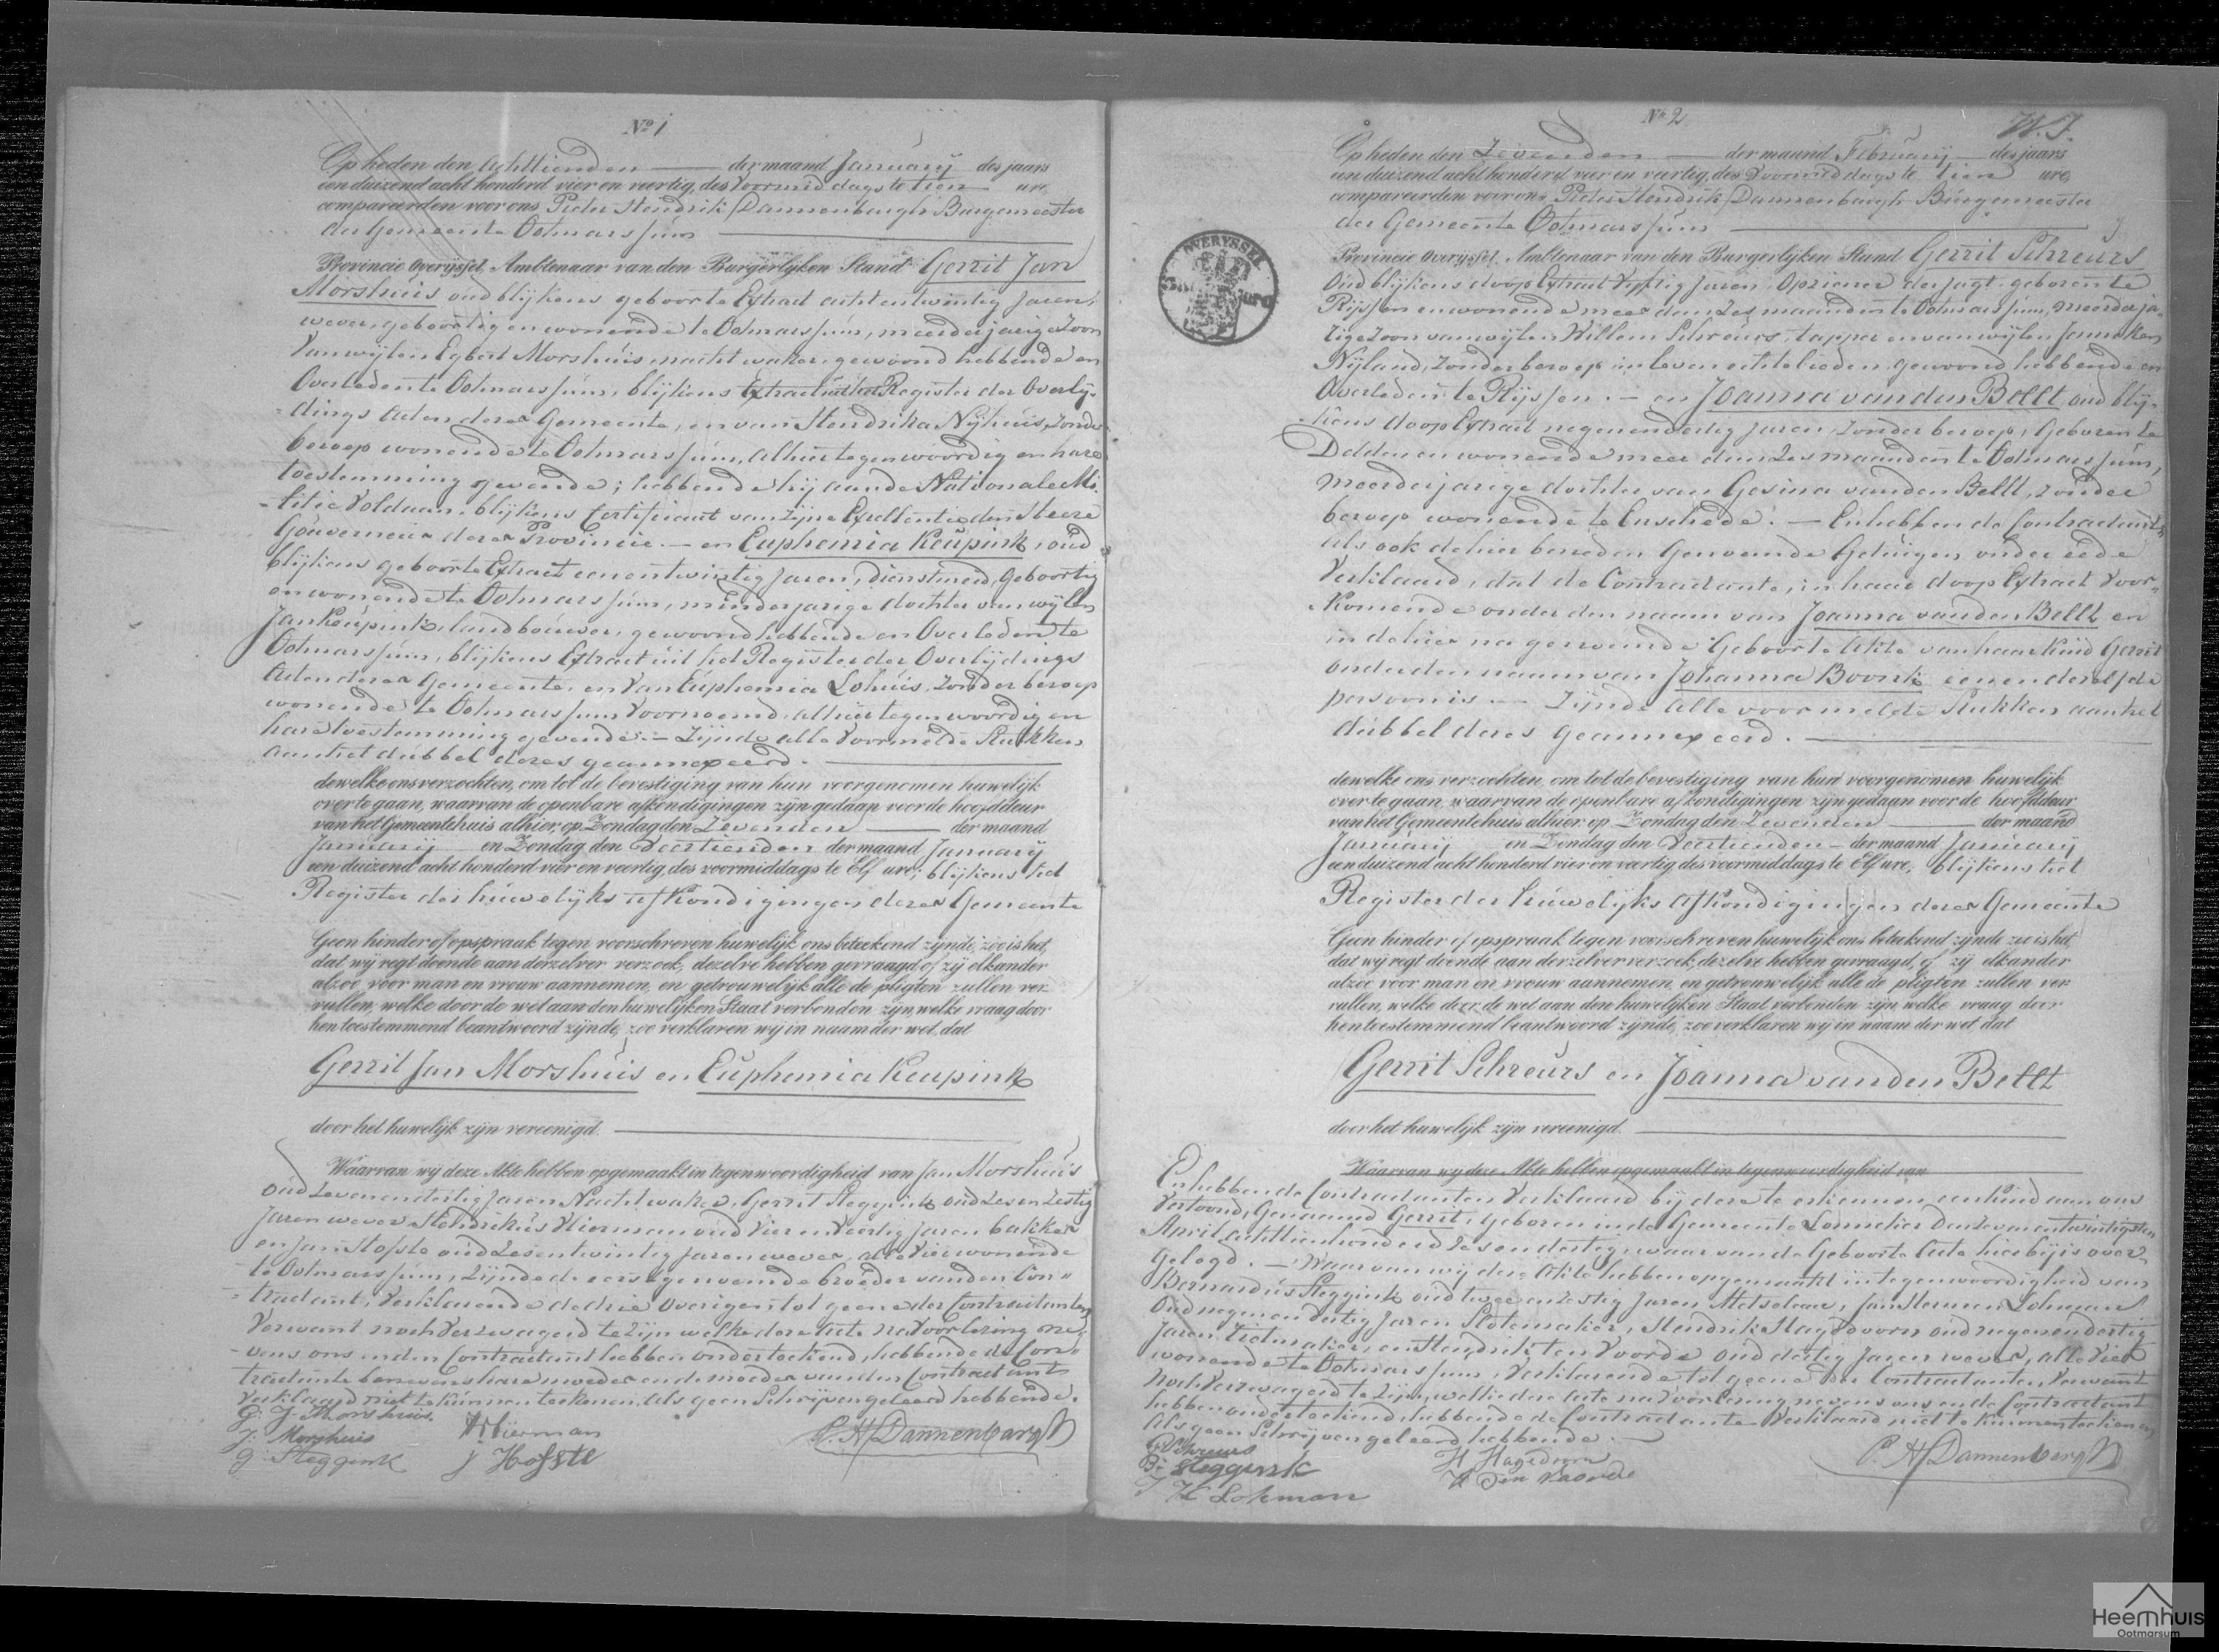 No 1
Op heden den achttienden der maand Januarij des jaars
een duizend acht honderd vier en veertig, des voormiddags te tien ure
compareerden voor ons Pieter Hendrik Dannenbargh Burgemeester
der Gemeente Ootmarssum
Provincie Overijssel, Ambtenaar van den Burgerlijken Stand Gerrit Jan
Morshuis oud blijkens geboorte Extract acht en twintig Jaren,
wever, geboortig en wonende te Ootmarssum, meerderjarige Zoon
van wijlen Egbert Morshuis, nachtwaker, gewoond hebbende en
Overleden te Ootmarssum, blijkens Extract uit het Register der Overlij-
-dings Acten dezer Gemeente, en van Hendrika Nijhuis, zonder
beroep wonende te Ootmarssum, alhier tegenwoordig en hare
toestemming gevende; hebbende hij aan de Nationale Mi-
-litie Voldaan, blijkens Certificaat van Zijne Excellentie den Heere
Gouverneur dezer Provincie. — en Euphemia Keupink, oud
blijkens geboorte Extract een en twintig Jaren, dienstmeid, Geboortig
en wonende te Ootmarssum, minderjarige dochter van wijlen
Jan Keupink, landbouwer, gewoond hebbende en Overleden te
Ootmarssum, blijkens Extract uit het Register der Overlijdings
Acten dezer Gemeente, en van Euphemia Lohuis, Zonder beroep
wonende te Ootmarssum voornoemd, alhier tegenwoordig en
hare toestemming gevende. — Zijnde alle voormelde Stukken
aan het dubbel dezes geannexeerd.
dewelke ons verzochten, om tot de bevestiging van hun voorgenomen huwelijk
over te gaan, waarvan de openbare afkondigingen zijn gedaan voor de hoofddeur
van het Gemeentehuis alhier, op Zondag den Zevenden der maand
Januarij en Zondag den Veertienden der maand Januarij
een duizend acht honderd vier en veertig, des voormiddags te Elf ure; blijkens het
Register der huwelijks afkondigingen dezer Gemeente
Geen hinder of opspraak tegen voorschreven huwelijk ons bekend zijnde, zoo is het,
dat wij regt doende aan derzelver verzoek, dezelve hebben gevraagd, of zij elkander
alzoo voor man en vrouw aannemen, en getrouwelijk alle de pligten zullen ver-
vullen, welke door de wet aan den huwelijken Staat verbonden zijn, welke vraag door
hen toestemmend beantwoord zijnde, zoo verklaren wij in naam der wet, dat
Gerrit Jan Morshuis en Euphemia Keupink
door het huwelijk zijn vereenigd.
Waarvan wij deze Akte hebben opgemaakt in tegenwoordigheid van Jan Morshuis
oud Zeven en dertig Jaren Nachtwaker, Gerrit Steggink oud Zes en Zestig
Jaren wever, Hendrikus Wierman oud Vier en Veertig Jaren bakker
en Jan Hofste oud Zes en twintig Jaren wever, alle Vier wonende
te Ootmarssum, Zijnde de eerstgenoemde broeder van den Con-
-tractant, Verklarende de drie Overigen tot geene der Contractanten
Verwant noch Verzwagerd te zijn welke deze Acte na voorlezing ne-
-vens ons en den Contractant hebben ondertekend, hebbende de Con-
tractante benevens hare moeder en de moeder van den Contractant
Verklaard niet te kunnen teekenen, als geen Schrijven geleerd hebbende.
G. J. Morshuis.
J: Morshuis
G Steggink
H Wierman
J Hofste
P. H Dannenbargh
No 2
Op heden den Zevenden der maand Februarij des jaars
een duizend acht honderd vier en veertig, des Voormiddags te tien ure,
compareerden voor ons Pieter Hendrik Dannenbargh Burgemeester
der Gemeente Ootmarssum
OVERYSSEL
Provincie Overijssel, Ambtenaar van den Burgerlijken Stand Gerrit Schreurs
Oud blijkens doop Extract Vijftig Jaren, Opziener der jagt, geboren te
Rijssen en wonende meer dan Zes maanden te Ootmarssum, meerderja-
rige Zoon van wijlen Willem Schreurs, tapper en van wijlen Janneken
Nijland, Zonder beroep in leven echtelieden gewoond hebbende en
Overleden te Rijssen. — en Joanna van den Bellt, oud blij-
kens doop Extract negen en dertig Jaren, Zonder beroep, Geboren te
Delden en wonende meer dan Zes maanden te Ootmarssum,
Meerderjarige dochter van Gesina van den Bellt, zonder
beroep wonende te Enschede. — En hebben de Contractanten
als ook de hier beneden Genoemde Getuigen, onder eede
Verklaard, dat de Contractante, in haar doop Extract Voor-
-komende onder den naam van Joanna van den Bellt en
in de hier na genoemde Geboorte Akte van haar Kind Gerrit
onder den naam van Johanna Boonk een en dezelfde
persoon is. — Zijnde alle voormelde Stukken aan het
dubbel dezes geannexeerd.
dewelke ons verzochten, om tot de bevestiging van hun voorgenomen huwelijk
over te gaan, waarvan de openbare afkondigingen zijn gedaan voor de hoofddeur
van het Gemeentehuis alhier, op Zondag den Zevenden der maand
Januarij en Zondag den Veertienden der maand Januarij
een duizend acht honderd vier en veertig, des voormiddags te Elf ure, blijkens het
Register der huwelijks afkondigingen dezer Gemeente
Geen hinder of opspraak tegen voorschreven huwelijk ons bekend zijnde zoo is het,
dat wij regt doende aan derzelver verzoek, dezelve hebben gevraagd, of zij elkander
alzoo voor man en vrouw aannemen, en getrouwelijk alle de pligten zullen ver-
vullen, welke door de wet aan den huwelijken Staat verbonden zijn, welke vraag door
hen toestemmend beantwoord zijnde, zoo verklaren wij in naam der wet, dat
Gerrit Schreurs en Joanna van den Bellt
door het huwelijk zijn vereenigd.
Waarvan wij deze Akte hebben opgemaakt in tegenwoordigheid van
En hebben de Contractanten Verklaard bij deze te erkennen een Kind aan ons
Vertoond, Genaamd Gerrit, geboren in de Gemeente Lonneker den Zeven en twintigsten
April achttien honderd Zes en dertig, waar van de Geboorte Acte hier bij is over-
gelegd. — Waar van wij deze Akte hebben opgemaakt in tegenwoordigheid van
Bernardus Steggink oud twee en zestig Jaren, Metselaar, Jan Herman Lohman
Oud negen en dertig Jaren Slotemaker, Hendrik Hagedoorn oud negen en dertig
Jaren, en Hendrik ten Voorde Oud dertig Jaren wever, alle Vier
wonende te Ootmarssum, Verklarende tot geene der Contractanten, Verwant
noch Verzwagerd te zijn, welke deze Acte na Voorlezing nevens ons en de Contractant
hebben ondertekend, hebbende de Contractante Verklaard niet te kunnen teekenen
als geen Schrijven geleerd hebbende.
G Schreurs
B: Steggink
J H Lohman
H Hagedoorn
H Ten Voorde
P. H Dannenbargh
Heemhuis
Ootmarsum